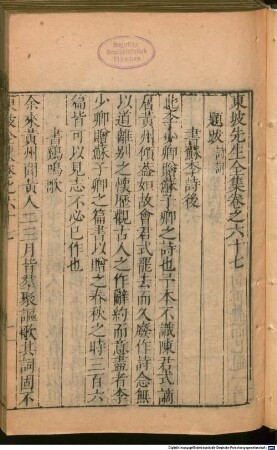 東坡先生全集卷之六十七
題跋 詩詞
書蘇李詩後
此李少卿贈蘇子卿之詩也予本不識陳君式謫
居黃州傾蓋如故會君式罷去而久廢作詩念無
以道離別之懷歷觀古人之作辭約而意盡者李
少卿贈蘇子卿之篇書以贈之春秋之時三百六
篇皆可以見志不必已作也
書雞鳴歌
余來黃州聞黃人二三月皆羣聚謳歌其詞固不
東坡全集卷之六十七
Bayerische
Staatsbibliothek
München